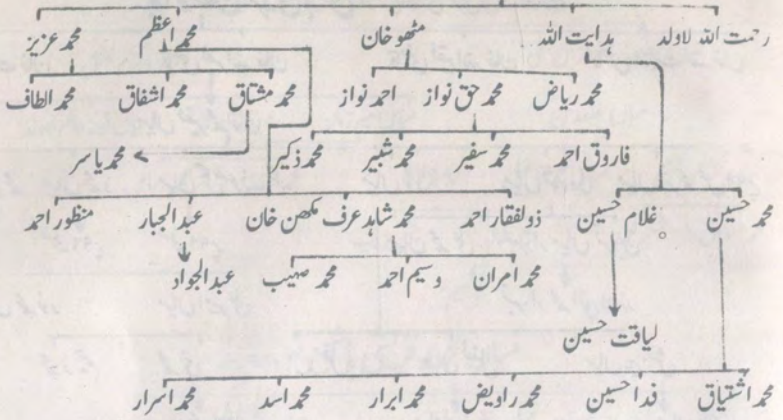 رحمت اللہ لاولد ہدایت اللہ مٹھو خان محمد اعظم محمد عزیز
محمد ریاض محمد حق نواز احمد نواز محمد مشتاق محمد اشفاق محمد الطاف
فاروق احمد محمد سفیر محمد شبیر محمد ذکیر محمد یاسر
محمد حسین غلام حسین ذولفقار احمد محمد شاہد عرف مکھن خان عبدالجبار منظور احمد
محمد امران وسیم احمد محمد صہیب عبدالجواد
لیاقت حسین
محمد اشتیاق فدا حسین محمد راویض محمد ابرار محمد اسد محمد اسرار